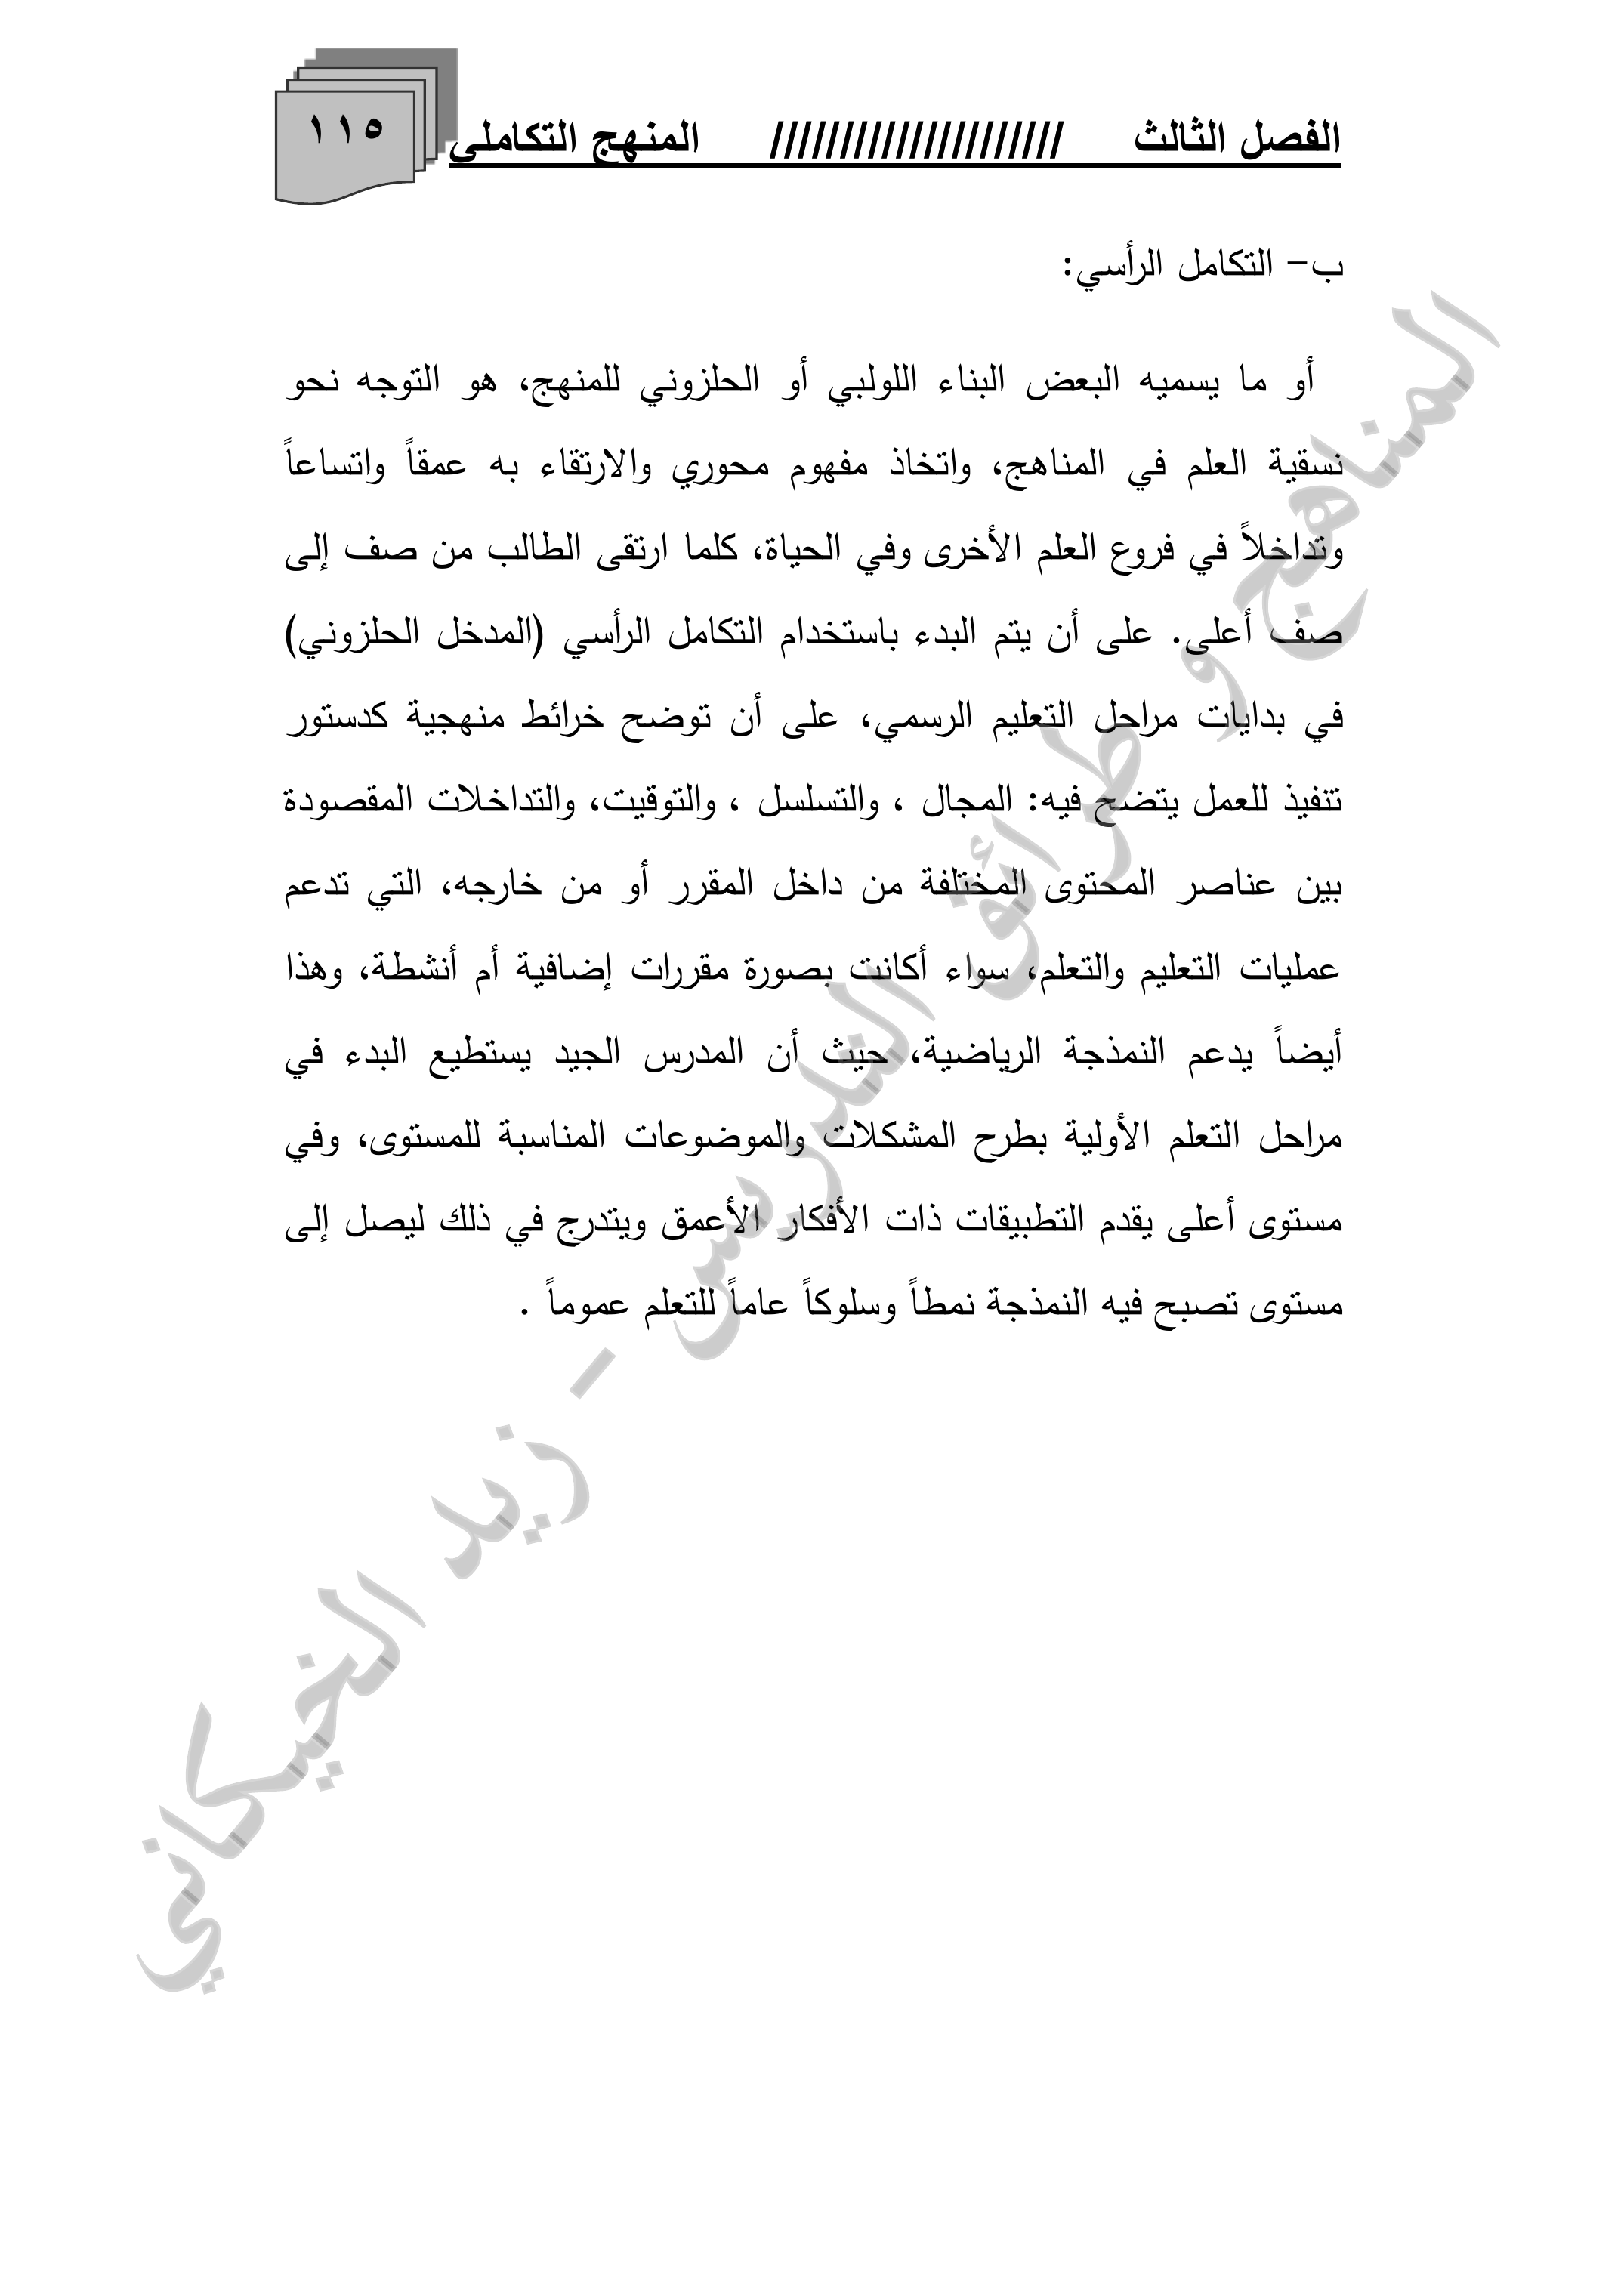 الفصل الثالث ///////////////////// المنهج التكاملي
١١٥
ب- التكامل الرأسي:
أو ما يسميه البعض البناء اللولبي أو الحلزوني للمنهج، هو التوجه نحو
نسقية العلم في المناهج، واتخاذ مفهوم محوري والارتقاء به عمقاً واتساعاً
وتداخلاً في فروع العلم الأخرى وفي الحياة، كلما ارتقى الطالب من صف إلى
صف أعلى. على أن يتم البدء باستخدام التكامل الرأسي (المدخل الحلزوني)
في بدايات مراحل التعليم الرسمي، على أن توضح خرائط منهجية كدستور
تتفيذ للعمل يتضح فيه: المجال ، والتسلسل ، والتوقيت، والتداخلات المقصودة
بين عناصر المحتوى المختلفة من داخل المقرر أو من خارجه، التي تدعم
عمليات التعليم والتعلم، سواء أكانت بصورة مقررات إضافية أم أنشطة، وهذا
أيضاً يدعم النمذجة الرياضية، حيث أن المدرس الجيد يستطيع البدء في
مراحل التعلم الأولية بطرح المشكلات والموضوعات المناسبة للمستوى، وفي
مستوى أعلى يقدم التطبيقات ذات الأفكار الأعمق ويتدرج في ذلك ليصل إلى
مستوى تصبح فيه النمذجة نمطاً وسلوكاً عاماً للتعلم عموماً .
المناهج و طرائق التدريس - زيد الخيكاني